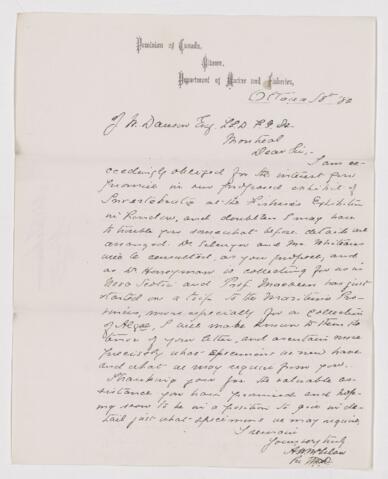 Dominion of Canada,
Ottawa.
Department of Marine and Fisheries,
Ottawa
J. W. Dawson Esq. LLD F.G.S.
Montreal
Dear Sir,-
I am ex-
ceedingly obliged for the interest you
promise in our proposed exhibit of
Invertebrata at the Fisheries Exhibition
in London, and doubtless I may have
to trouble you somewhat before details are
arranged. Dr Selwyn and Mr Whiteaves
will be consulted, as you propose, and
as Dr Honeyman is collecting for us in
Nova Scotia and Prof. Macoun has just
started on a trip to the Maritime Pro-
vinces, more especially for a collection
of Algae, I will make known to them the
tenor of your letter, and ascertain more
precisely what specimens we now have
and what we may require from you.
Thanking you for the valuable as-
sistance you have promised and hop-
ing soon to be in a position to give in de-
tail just what specimens we may require,
I remain
Yours very truly